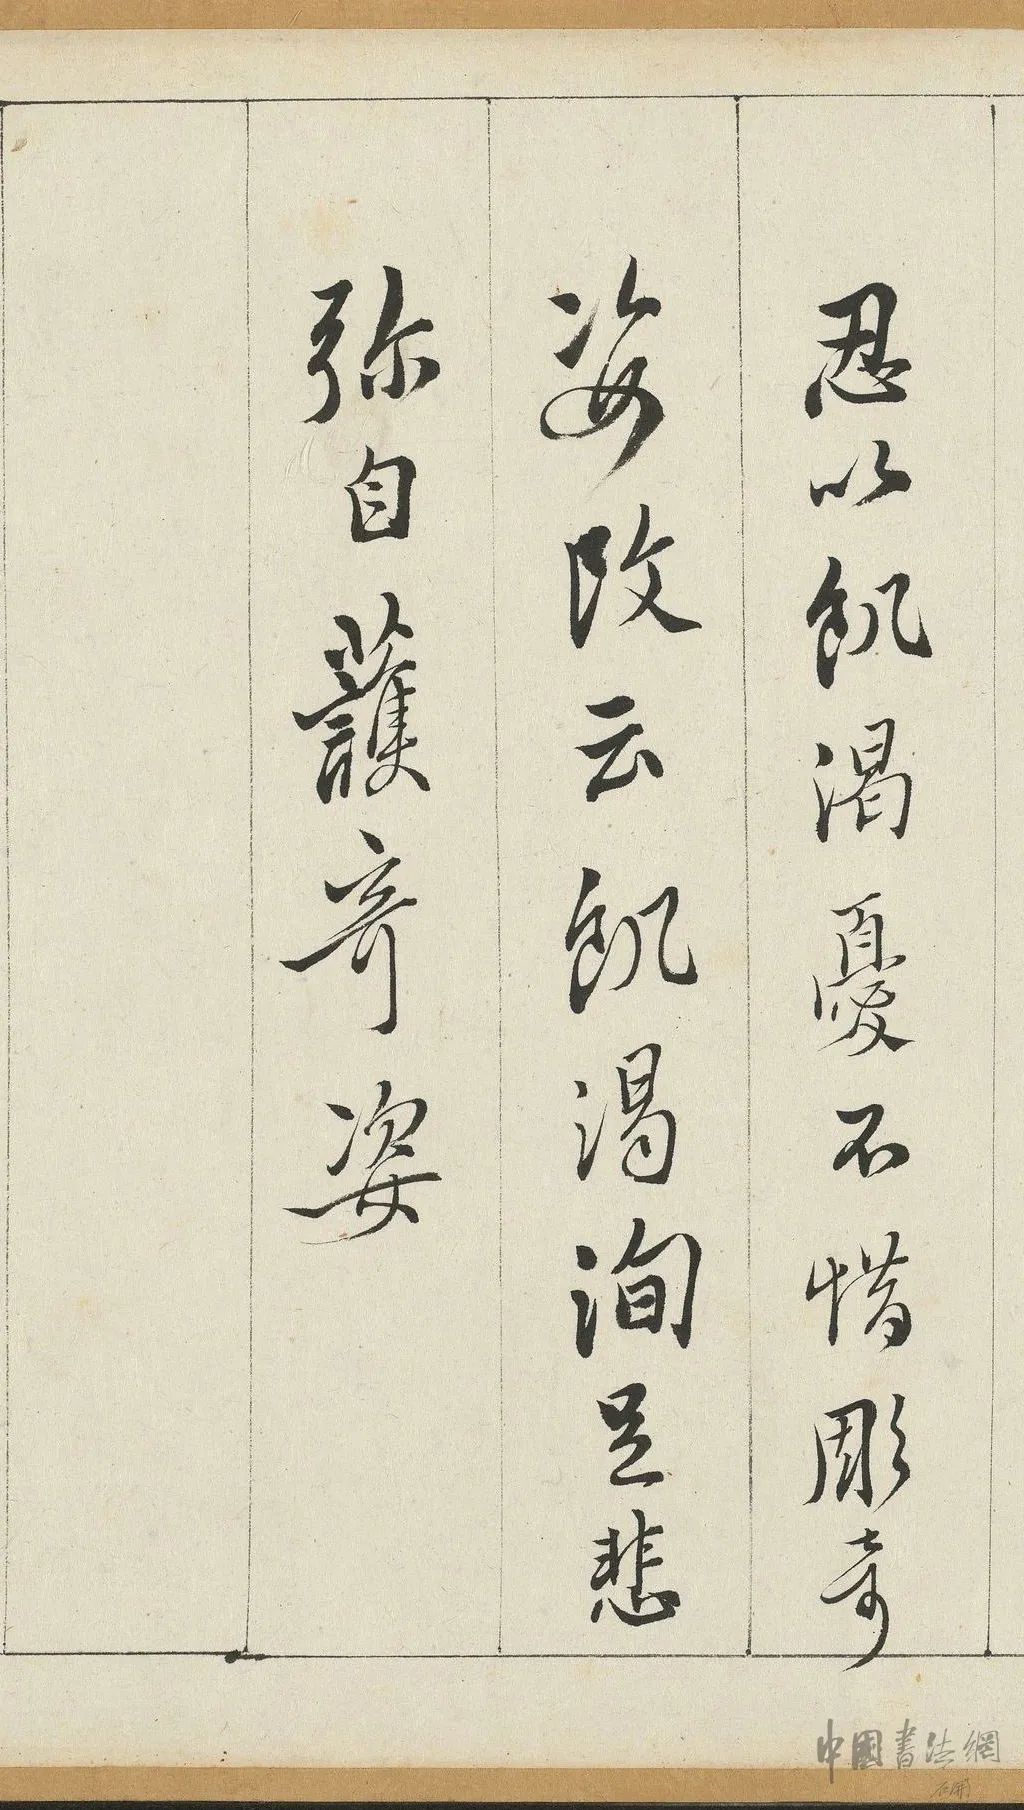 忍以飢渴憂不惜彫奇
姿改云飢渴洵足悲
弥自護奇姿
中國書法網